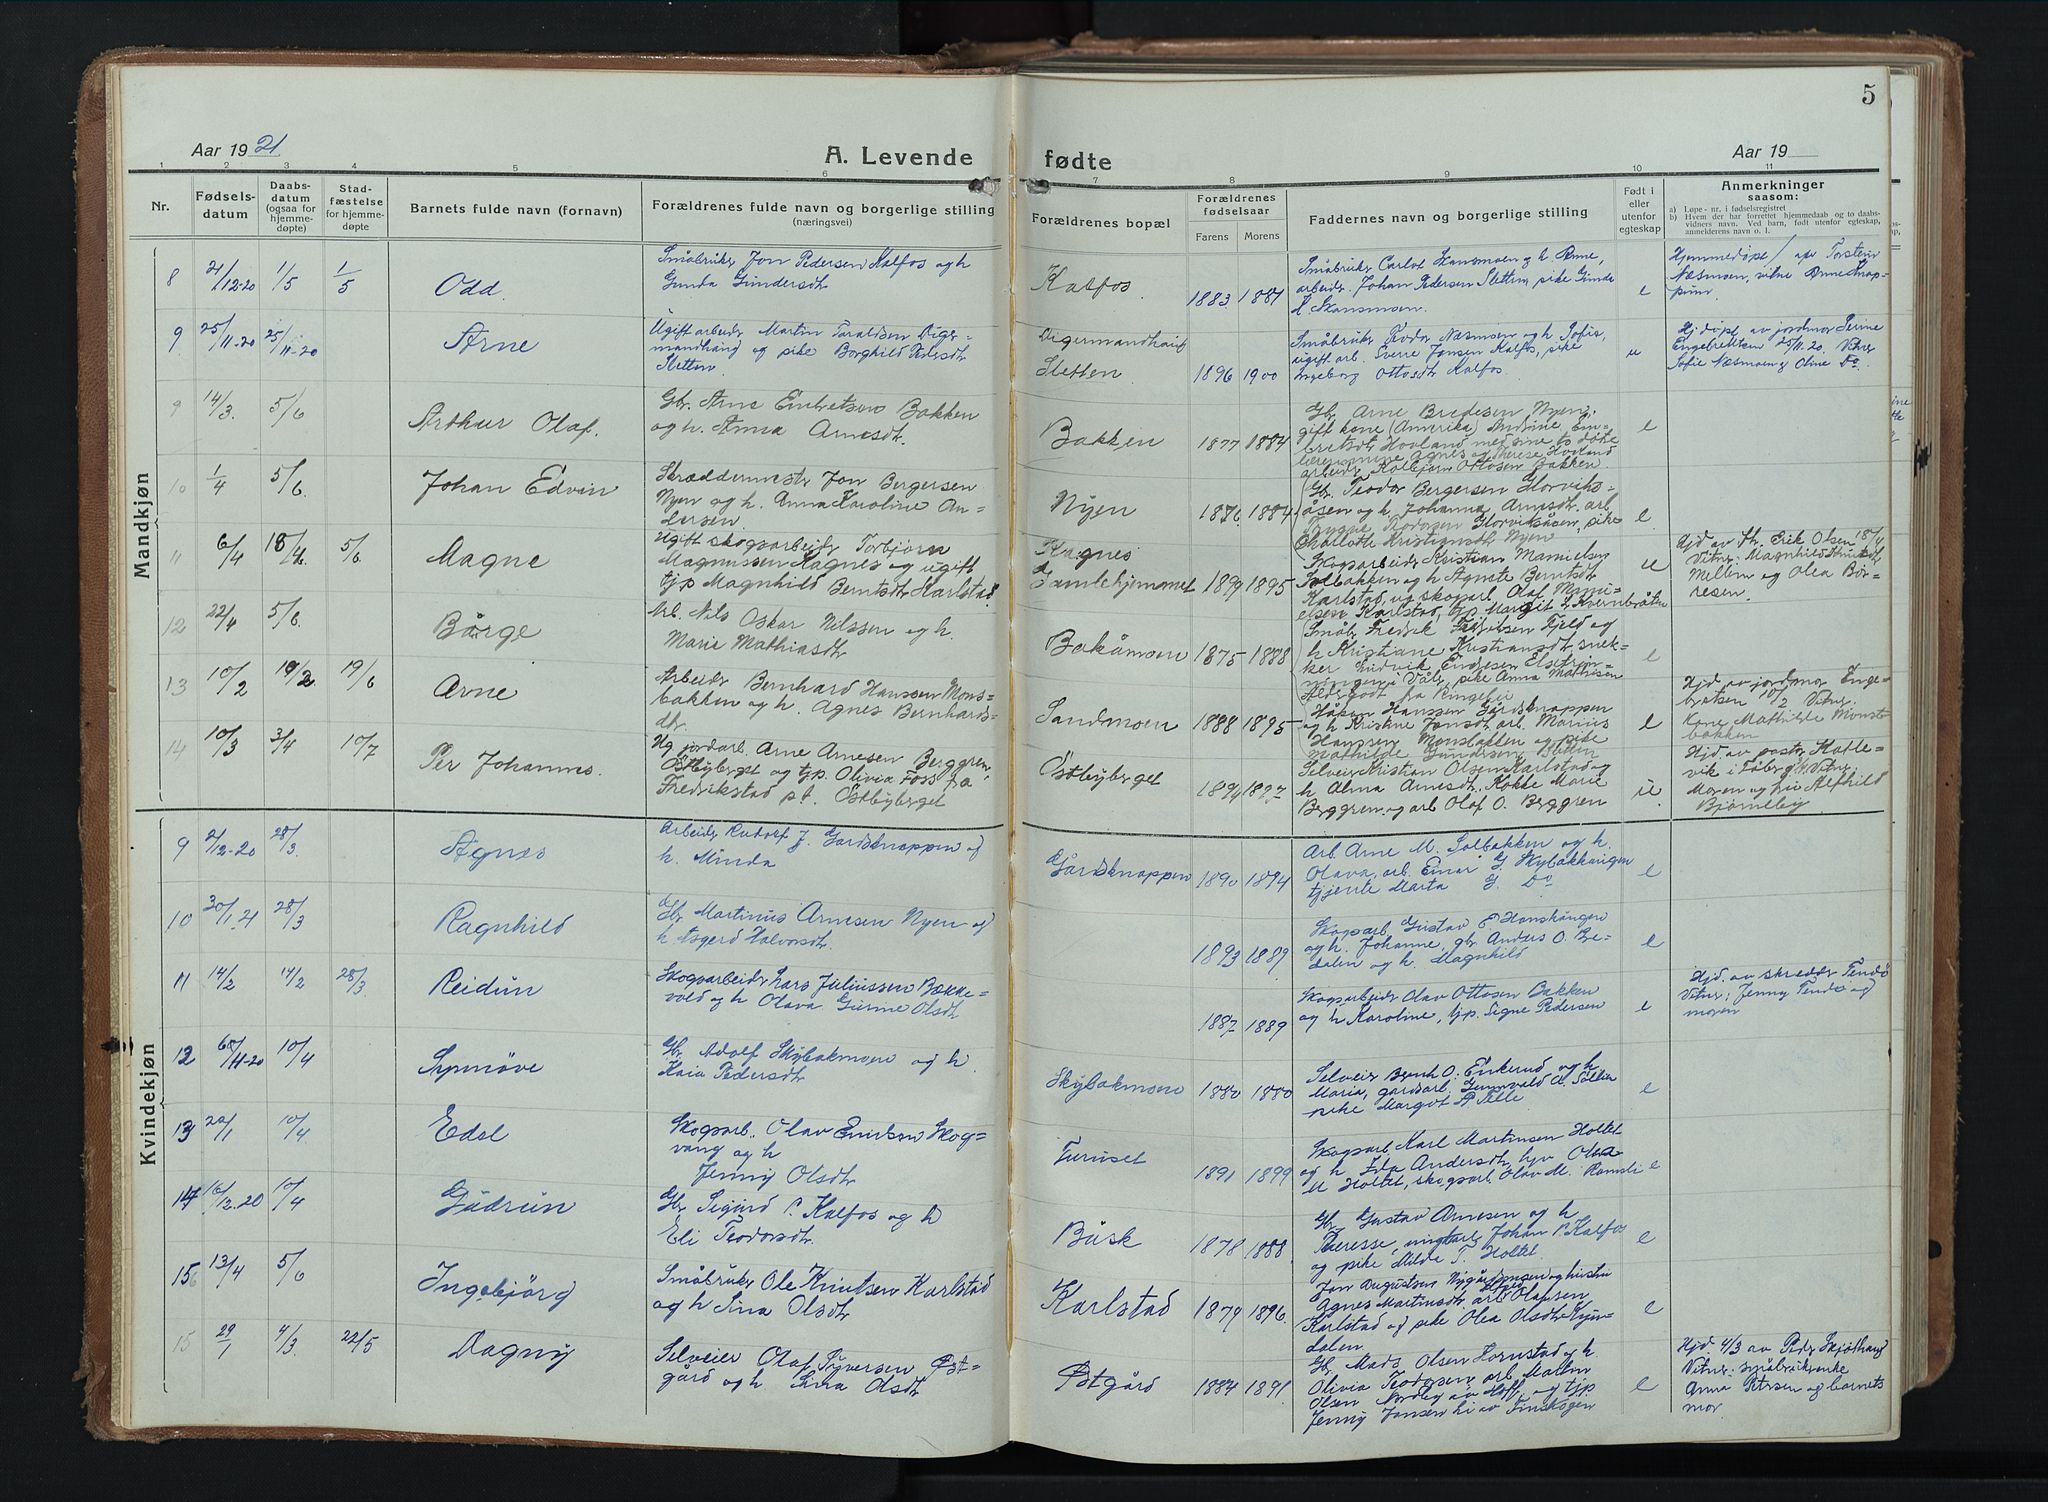 5
Aar 1921
A. Levende
fødte
Aar 19
1 2 3 4 5 6 7 8 9 10 11
Nr.
Fødsels-
datum
Daabs-
datum
(ogsaa for
hjemme-
døpte)
Stad-
fæstelse
for hjemme-
døpte
Barnets fulde navn (fornavn)
Forældrenes fulde navn og borgerlige stilling
(næringsvei)
Forældrenes bopæl
Forældrenes
fødselsaar
Farens
Morens
Faddernes navn og borgerlige stilling
Født i
eller
utenfor
egteskap
Anmerkninger
saasom:
a) Løpe-nr. i fødselsregistret
b) Hvem der har forrettet hjemmedaab og to daabs-
vidners navn. Ved barn, født utenfor egteskap,
anmelderens navn o. l.
Mandkjøn
8 2/12-20 1/5 1/5 Odd.
Småbruker Jon Pedersen Kalfos og h
Gunda Gundersdtr
Kalfos 1883 1881
arbeidr. Johan Pedersen Sletten, pike
e
Næsmoen, vitne
9 25/11-20 25/11-20 Arne
Ugift arbeidr Martin Taraldsen Diger-
mandhaug og pike Borghild Pedersdtr
Sletten
Sletten 1896 1900
Småbruker Teodor Næsmoen og h. Sofie,
ugift arb. Sverre Jansen Kalfos, pike
Ingeborg Ottosdtr Kalfos.
u
Hjdøpt av jordmor Serine
Engebretsen 25/11-20. Vitner
Sofie Næsmoen og Oline Do
9 14/3. 5/6 Arthur Olaf.
Gbr. Arne Embretsen Bakken
og h. Anna Arnesdtr.
Bakken 1877 1884
Gbr Arne Bredesen Nyen,
gift kone (Amerika) Andrine Em-
bretsdtr Hovland med sine to døtre
lærerinnene Agnes og Therese Hovland
arbeidr Kolbjørn Ottosen Bakken.
e
10 1/4 5/6 Johan Edvin
Skræddermestr Jon Bergersen
Nyen og h. Anna Karoline An-
dersen.
Nyen 1876 1884
Gbr. Teodor Bergersen Glorviks-
åsen og h. Johanna Arnesdtr. arb
Trygve Teodorsen Glorviksåsen, pike
Charlotte Kristiansdtr Nyen
e.
11 6/4 18/4 5/6 Magne
Ugift skogsarbeidr Torbjörn
Magnussen Kagnes og ugift
tjp Magnhild Berntsdtr Karlstad.
Kagnes
Gamlehjemmet 1899 1895
Skogsarbeidr Kristian
Solbakken og h Agnete Berntsdtr
Karlstad, ug skogarb. Olaf
Karlstad, tjp. Margit
u
Hjd av Erik Olsen 18/4
Vitner: Magnhild
og Olea Bör-
resen.
12 22/4 5/6 Børge
Nils Oskar Nilssen og h.
Marie Mathiasdtr
Bakåmoen 1875 1888
Småb Fredrik Fjeld og
h Kristiane Kristiansdtr snek-
ker Ludvik Endresen
i Våler, pike Anna Mathisen
fra Ringebu
e
13 10/2 10/2 19/6 Arne
Arbeidr Bernhard Hanssen Mons-
bakken og h. Agnes Bernhards-
dtr.
Sandmoen 1888 1895
Håken Hanssen Gårdsknappen
og h Kristine Jonsdtr. arb. Marius
Hanssen Monsbakken og pike
Mathilde Gundersen Sletten
e
Hjd av jordmor Enge-
bretsen 10/2 Vitner.
Kone Mathilde Mons-
bakken
14 10/3 3/4 10/7 Per Johannes.
Ug jordarb. Arne Arnesen Berggren,
Østbyberget og tjp. Olivia Foss fra
Fredrikstad p.t. Østbyberget
Östbyberget 1894 1897
Selveier Kristian Olsen Karlstad og
h Alma Arnesdtr. Kokke Marie
Berggren og arb Olaf O. Berggren
u.
Hjd av pastor
vik i Fåberg 3/4. Vitner:
Moren og fru Alfhild
Bjørneby
Kvindekjøn
9 2/12-20 28/3. Agnes
Arbeidr Rudolf J. Gardsknappen og
h. Minda
Gårdsknappen 1890 1894
Arb. Arne M. Solbakken og h.
Olava, arb. Einar G. Skybakhaugen
tjente Marta G. Do
e
10 30/1.21 28/3 Ragnhild
Gbr Martinus Arnesen Nyen og
h Asgerd Halvorsdtr.
1893 1889
Skogarb. Gustav E Honskåugen
og h. Johanne, gbr Anders O. Bre-
dalen og h. Magnhild
e
11 14/2 14/2 28/3 Reidun
Skogsarbeidr Lars Juliussen Bække-
vold og h Olava Gurine Olsdtr
1887 1889
Skogsarbeidr Olav Ottosen Bakken
og h Karoline, tjp. Signe Pedersen
e
Hjd. av skredder Tendø
Vitner; Jenny Tendø og
moren
12 11-20 10/4 Synnöve
Gbr. Adolf Skybakmoen og h.
Kaia Pedersdtr
Skybakmoen 1880 1880
Selveier Bernh O. Enkerud og h
Maria, gardsarb. Gunnvald A. Sollien
pike Margot P Telle
e
13 20/1 10/4 Edel
Skogsarb. Olav Emilsen Skog-
vang og h
Jenny Olsdtr
Furuset 1891 1899
Skogsarb Karl Martinsen Holtet
og h Ida Andersdtr, hjv Olea
M Holtet, skogsarb. Olav M.
e
14 16/12.20 10/4 Gudrun
Gbr. Sigurd P. Kalfos og h
Eli Teodorsdtr.
Busk 1878 1888
Gbr. Gustav Arnesen og h
Therese, ungkarl Johan P. Kalfos
og pike Milde T. Holtet
e
15 13/4 5/6 Ingebjörg
Småbruker Ole Knutsen Karlstad
og h Sina Olsdtr.
Karlstad 1879 1896
Jon Augustsen og hustru
Agnes Martinsdtr. arb. Olaf Olsen
Karlstad og pike Olea Olsdtr
dalen
e
15 29/1 4/3. 22/5 Dagny
Selveier Olaf Syversen Øst-
gård og h Lina Olsdtr
Østgård 1884 1891
Gbr. Mads Olsen Hornstad og h.
Olivia Teodorsen, arb. Martin
Olsen Nordby av Hoff, og tjp
Jenny Jansen hi av Finskogen
e
Hjd. 4/3 av Peder Skjåthaug
Vitner: småbrukerenke
Anna Petersen og barnets
mor.